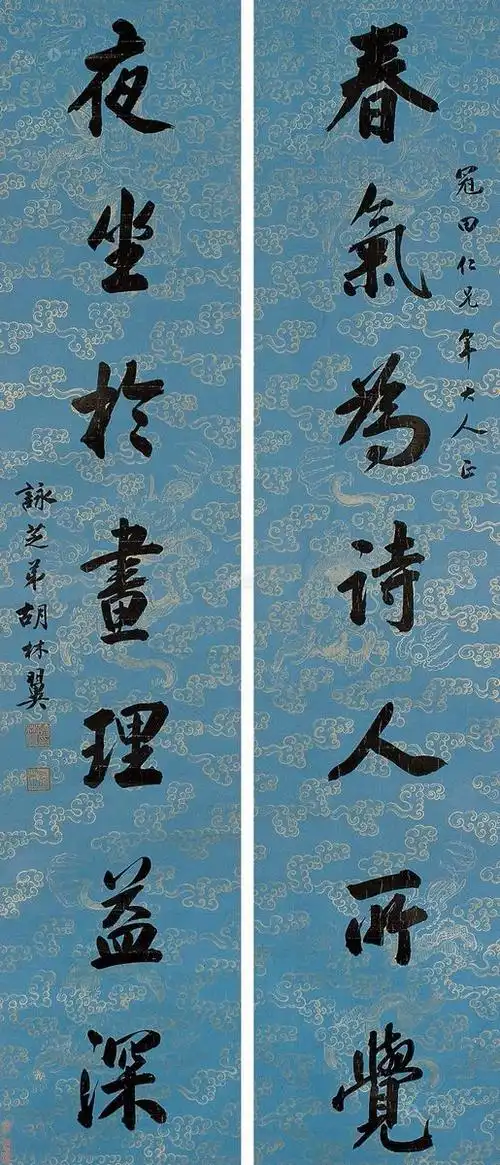 冠田仁兄年大人正
春氣為诗人所覺
夜坐於畫理益深
詠芝弟胡林翼